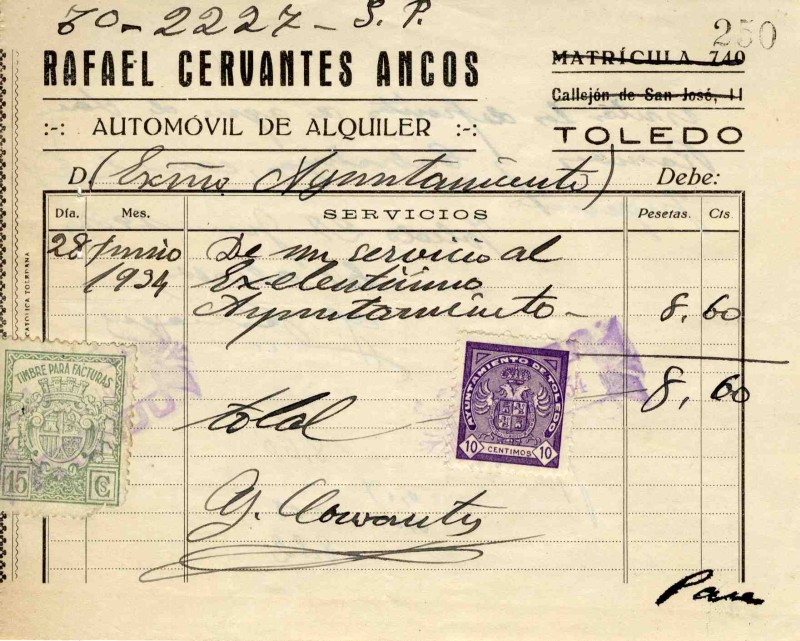 70-2227-S.P.
250
RAFAEL CERVANTES ANCOS
MATRÍCULA 740
Callejón de San José, 11
:-: AUTOMÓVIL DE ALQUILER :-:
TOLEDO
D (Exmo Ayuntamiento) Debe:
Día. Mes. SERVICIOS Pesetas. Cts
28 Junio De un servicio al
1934 Exelentisimo
Ayuntamiento - 8,60
CATÓLICA TOLEDANA
TIMBRE PARA FACTURAS
15 C
AYUNTAMIENTO DE TOLEDO
10 CENTIMOS 10
total 8,60
Cervantes